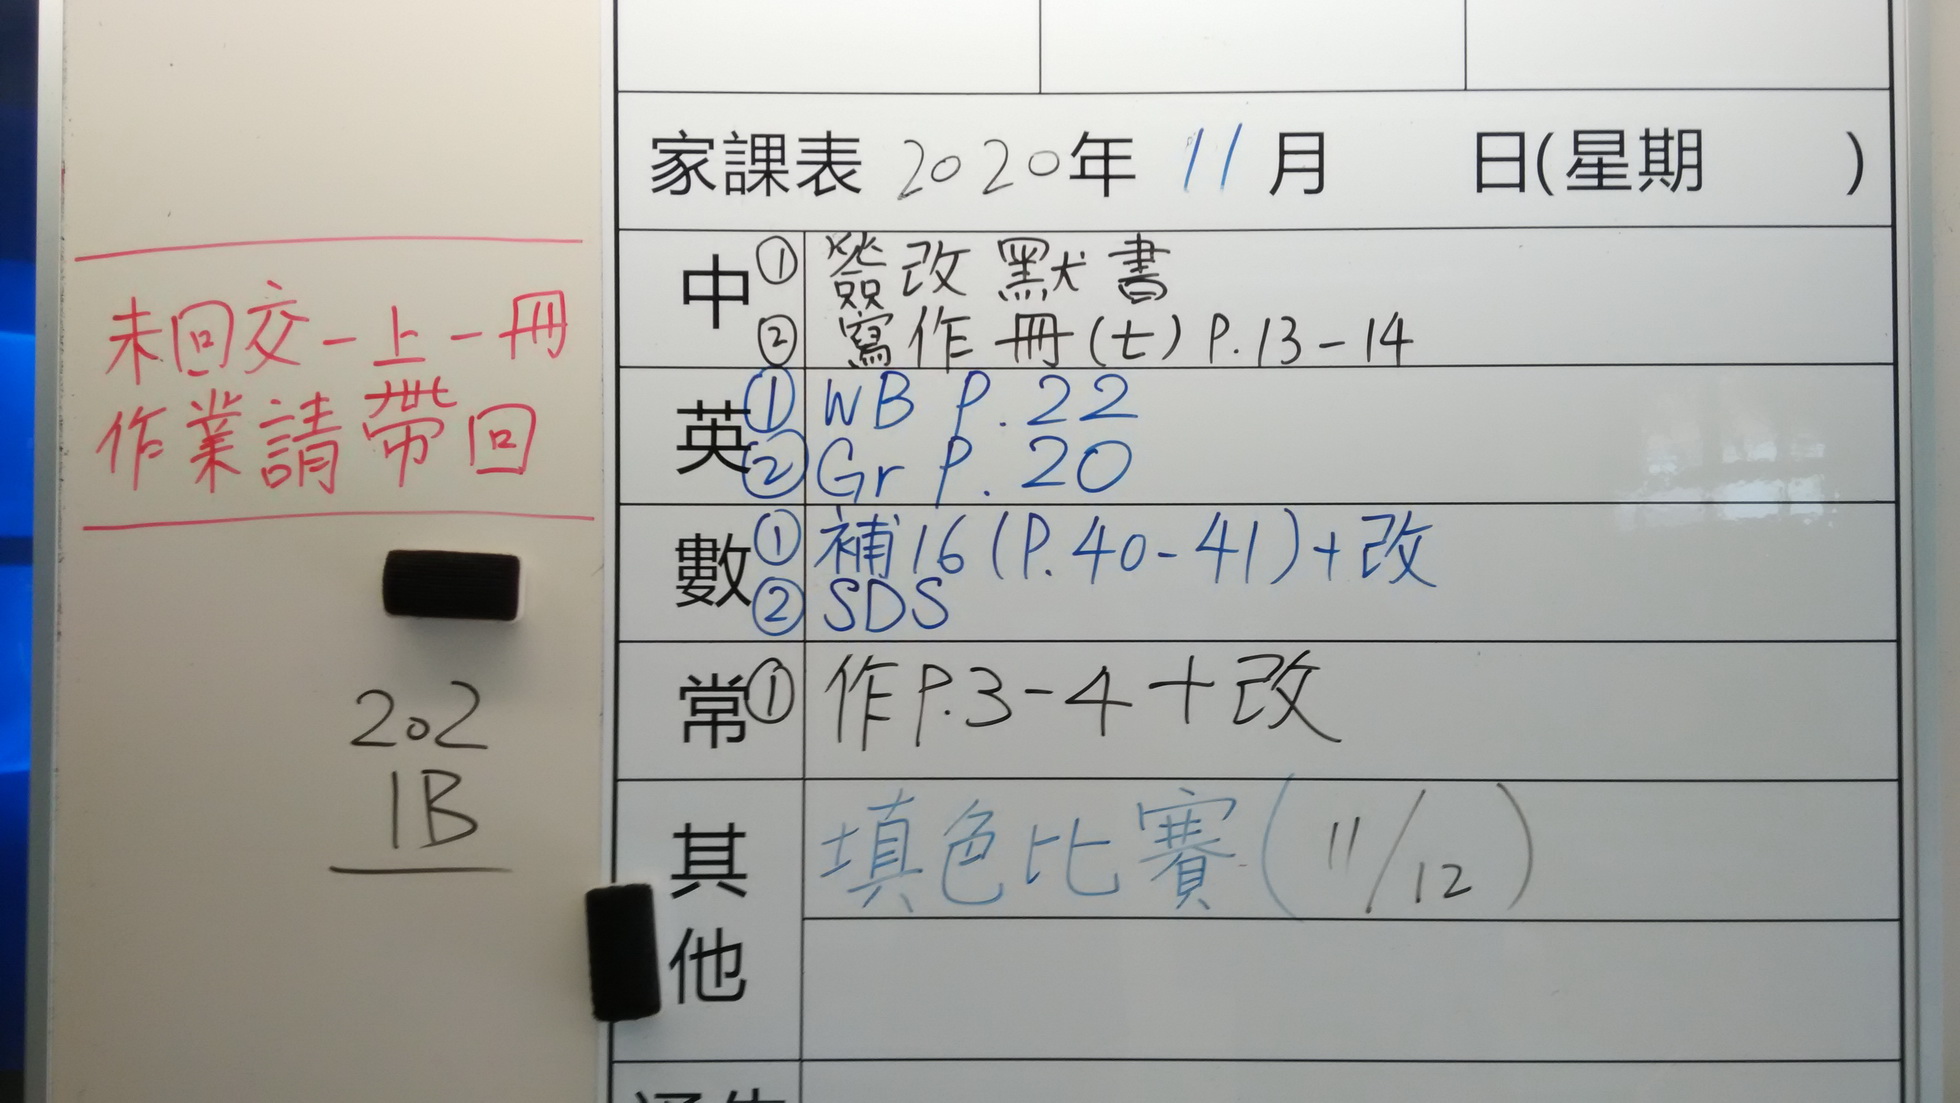 家課表 2020年 11月 日(星期 )
中 ① 簽改默書
② 寫作冊(七) P.13-14
英 ① WB P.22
② Gr P.20
數 ① 補16(P.40-41)+改
② SDS
常 ① 作P.3-4+改
其他 填色比賽(11/12)
未回交一上一冊
作業請帶回
202
1B